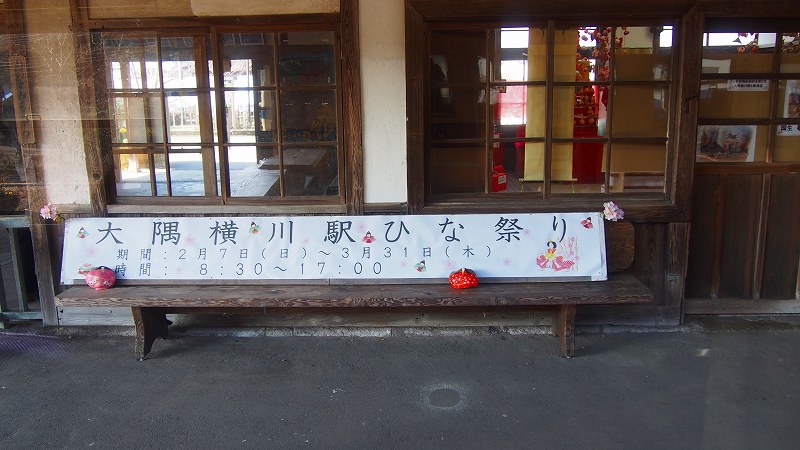 大隅横川駅ひな祭り
期間：2月7日（日）～3月31日（木）
時間：8：30～17：00